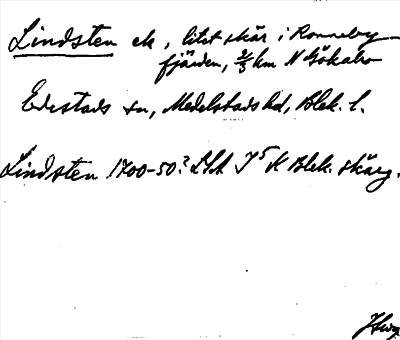 Lindsten ek, litet skär i Ronneby-
fjärden, 2/3 km N Gökalv
Edestads sn, Medelstads hd, Blek. l.
Lindsten 1700-50? LSA I 5 K Blek. skärg.